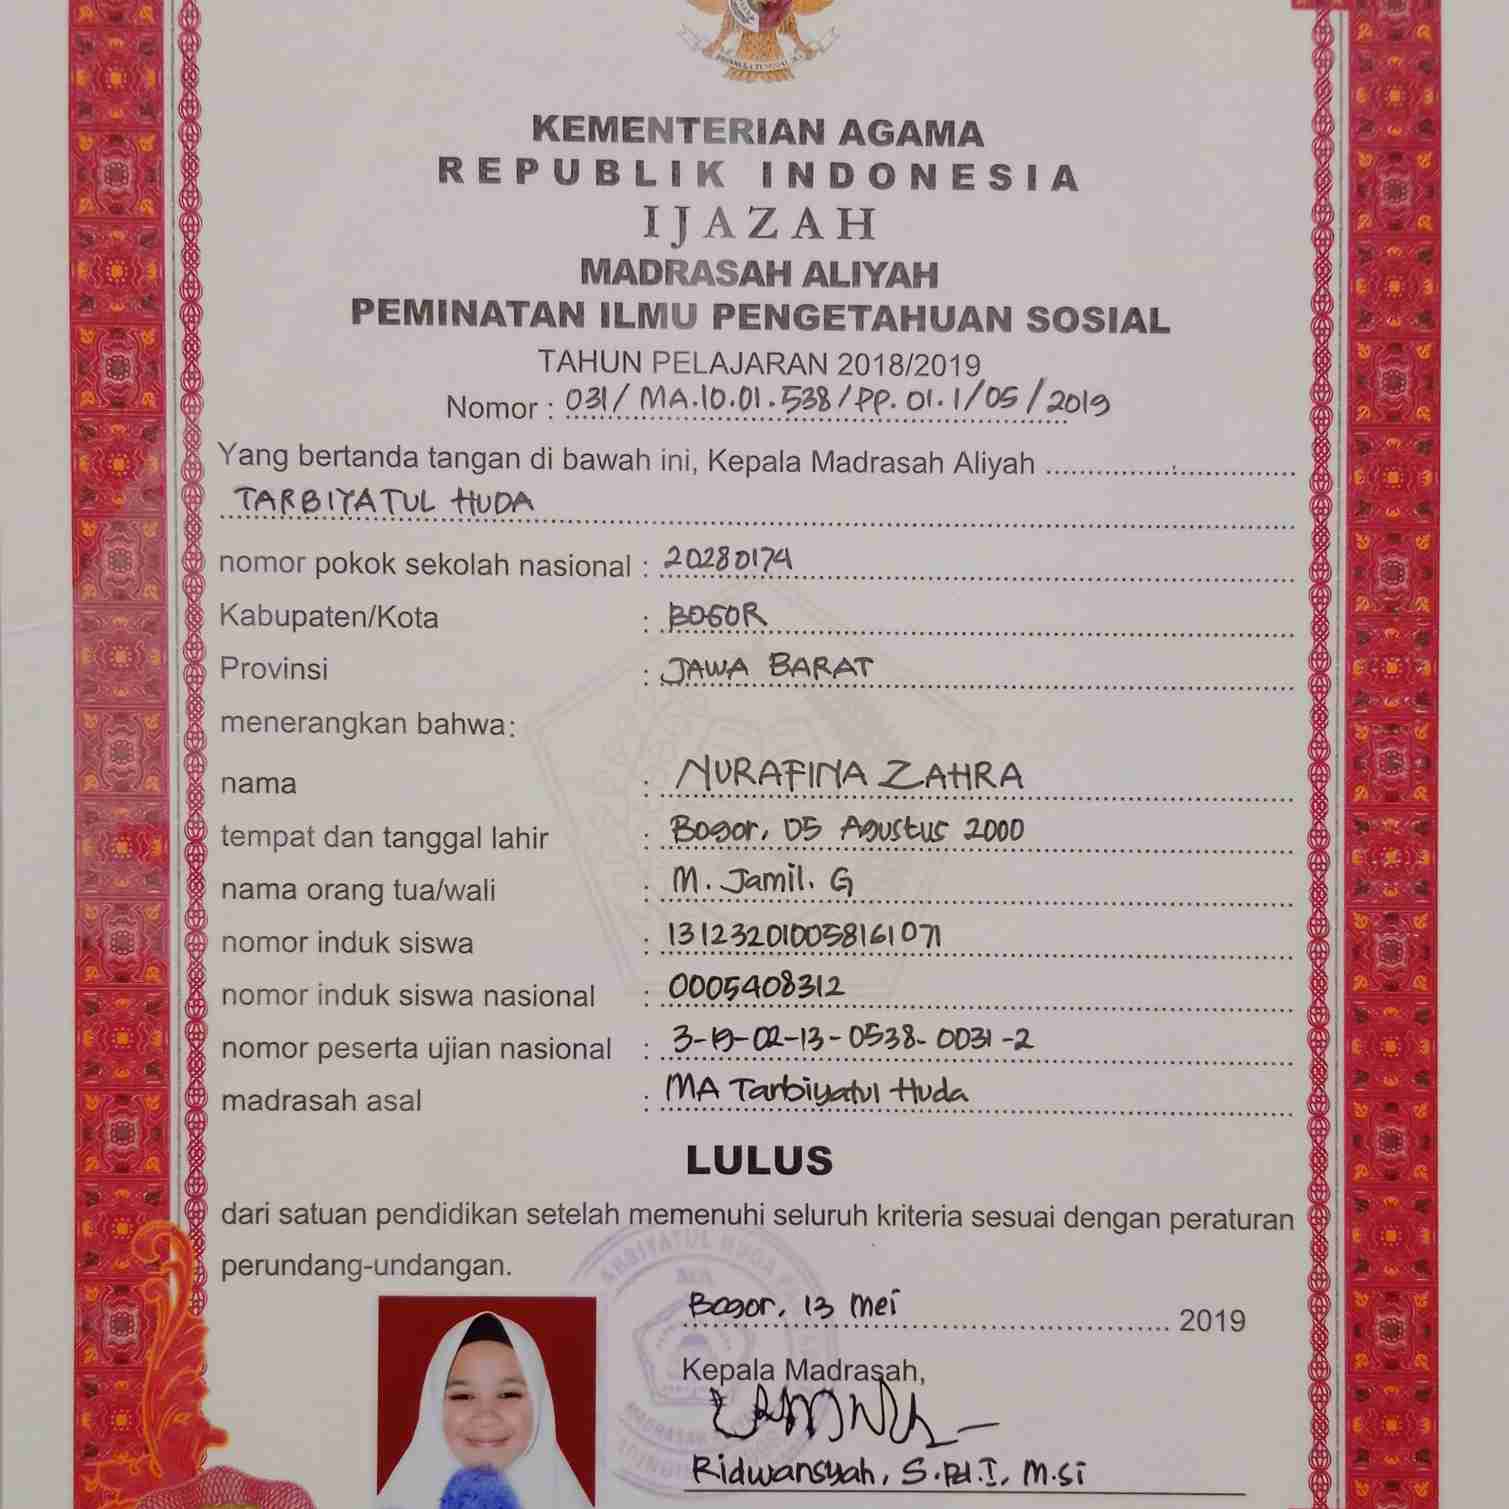 KEMENTERIAN AGAMA
REPUBLIK INDONESIA
IJAZAH
MADRASAH ALIYAH
PEMINATAN ILMU PENGETAHUAN SOSIAL
TAHUN PELAJARAN 2018/2019
Nomor : 031/ MA.10.01.538/PP.01.1/05/2019
Yang bertanda tangan di bawah ini, Kepala Madrasah Aliyah
TARBIYATUL HUDA
nomor pokok sekolah nasional : 20280174
Kabupaten/Kota : BOGOR
Provinsi : JAWA BARAT
menerangkan bahwa:
nama : NURAFINA ZAHRA
tempat dan tanggal lahir : Bogor, 05 Agustus 2000
nama orang tua/wali : M. Jamil. G
nomor induk siswa : 131232010058161071
nomor induk siswa nasional : 0005408312
nomor peserta ujian nasional : 3-19-02-13-0538-0031-2
madrasah asal : MA Tarbiyatul Huda
LULUS
dari satuan pendidikan setelah memenuhi seluruh kriteria sesuai dengan peraturan
perundang-undangan.
Bogor, 13 Mei 2019
Kepala Madrasah,
Ridwansyah, S.Pd.I, M.Si